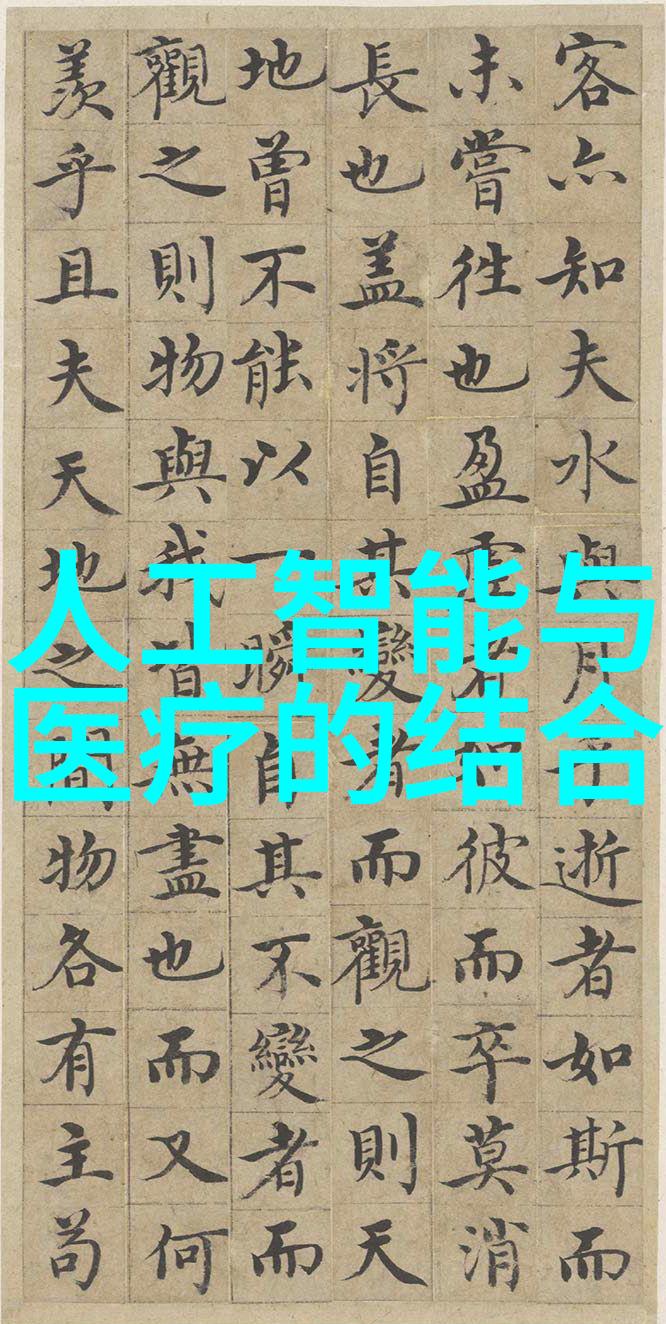 客亦知夫水與月乎逝者如斯而
未嘗徃也盈虛者如彼而卒莫消
長也盖將自其變者而觀之則天
地曾不能以一瞬自其不變者而
觀之則物與我皆無盡也而又何
羨乎且夫天地之間物各有主苟
人工智能与
医疗的结合